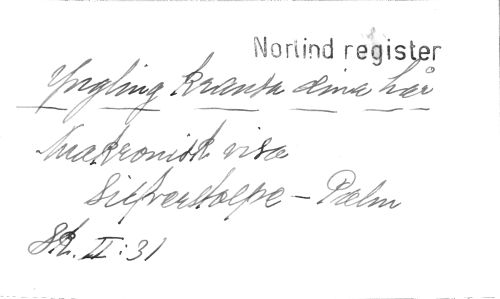 Norlind register
Yngling kransa dina hår
Makronisk visa
Silfverstolpe - Palm
SK. II:31